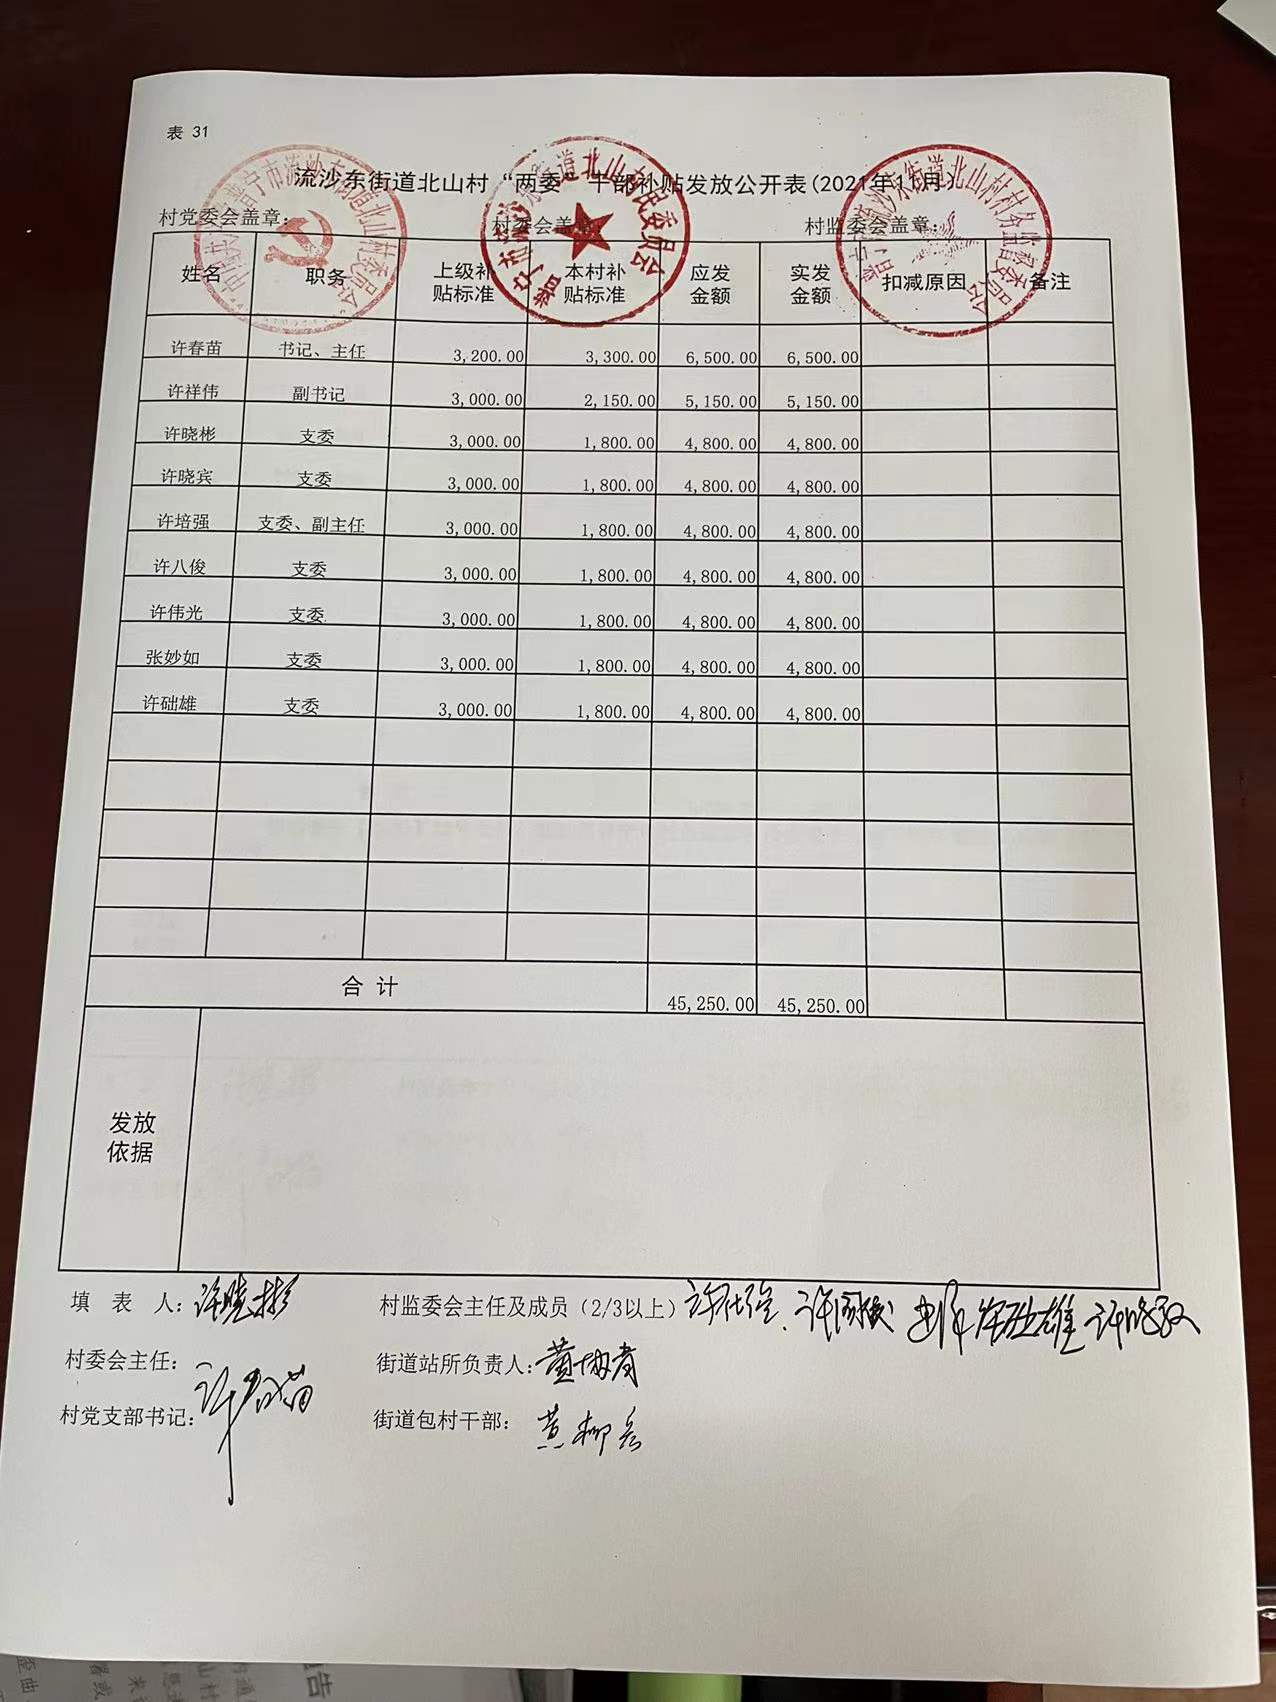 表 31
流沙东街道北山村“两委”干部补贴发放公开表(2021年11月
村党委会盖章： 村委会盖章： 村监委会盖章：
姓名 职务 上级补贴标准 本村补贴标准 应发金额 实发金额 扣减原因 备注
许春苗 书记、主任 3,200.00 3,300.00 6,500.00 6,500.00
许祥伟 副书记 3,000.00 2,150.00 5,150.00 5,150.00
许晓彬 支委 3,000.00 1,800.00 4,800.00 4,800.00
许晓宾 支委 3,000.00 1,800.00 4,800.00 4,800.00
许培强 支委、副主任 3,000.00 1,800.00 4,800.00 4,800.00
许八俊 支委 3,000.00 1,800.00 4,800.00 4,800.00
许伟光 支委 3,000.00 1,800.00 4,800.00 4,800.00
张妙如 支委 3,000.00 1,800.00 4,800.00 4,800.00
许础雄 支委 3,000.00 1,800.00 4,800.00 4,800.00
合 计 45,250.00 45,250.00
发放依据
填 表 人：许晓彬 村监委会主任及成员（2/3以上） 许础雄
村委会主任： 街道站所负责人：
村党支部书记：许春苗 街道包村干部：